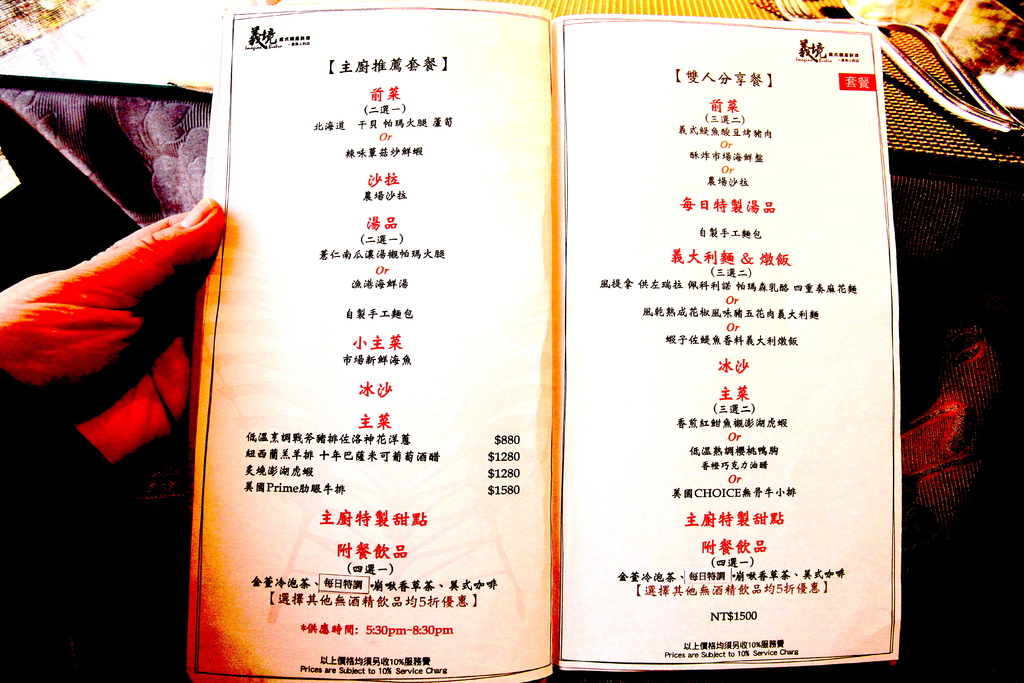 義境 義式餐廳料理
Imagine Bistro
【主廚推薦套餐】
前菜
(二選一)
北海道 干貝 帕瑪火腿 蘆筍
Or
辣味蕈菇炒鮮蝦
沙拉
農場沙拉
湯品
(二選一)
薏仁南瓜濃湯襯帕瑪火腿
Or
漁港海鮮湯
自製手工麵包
小主菜
市場新鮮海魚
冰沙
主菜
低溫烹調戰斧豬排佐洛神花洋蔥 $880
紐西蘭羔羊排 十年巴薩米可葡萄酒醋 $1280
炙燒澎湖虎蝦 $1280
美國Prime肋眼牛排 $1580
主廚特製甜點
附餐飲品
(四選一)
金萱冷泡茶、每日特調、啁啾香草茶、美式咖啡
【選擇其他無酒精飲品均5折優惠】
*供應時間: 5:30pm~8:30pm
以上價格均須另收10%服務費
Prices are Subject to 10% Service Charg
義境
Imagine Bistro
套餐
【雙人分享餐】
前菜
(三選二)
義式鯷魚酸豆烤豬肉
Or
酥炸市場海鮮盤
Or
農場沙拉
每日特製湯品
自製手工麵包
義大利麵 & 燉飯
(三選二)
風提拿 供左瑞拉 佩科利諾 帕瑪森乳酪 四重奏麻花麵
Or
風乾熟成花椒風味豬五花肉義大利麵
Or
蝦子佐鯷魚香料義大利燉飯
冰沙
主菜
(三選二)
香煎紅魽魚襯澎湖虎蝦
Or
低溫熟調櫻桃鴨胸
香橙巧克力油醋
Or
美國CHOICE無骨牛小排
主廚特製甜點
附餐飲品
(四選一)
金萱冷泡茶、每日特調、啁啾香草茶、美式咖啡
【選擇其他無酒精飲品均5折優惠】
NT$1500
以上價格均須另收10%服務費
Prices are Subject to 10% Service Charg